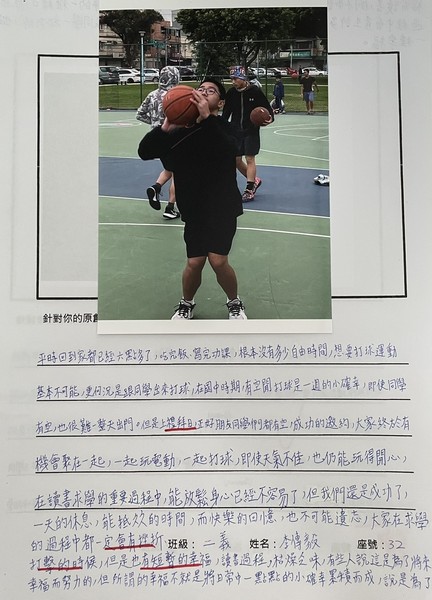 針對你的原創
平時回到家都已經六點多了，吃完飯、寫完功課，根本沒有多少自由時間，想要打球運動
基本不可能，更何況是跟同學出來打球，在國中時期，有空閒打球是一週的小確幸，即使同學
有空，也很難一整天出門。但是上禮拜日正好朋友同學們都有空，成功的邀約，大家終於有
機會聚在一起，一起玩電動，一起打球，即使天氣不佳，也仍能玩得開心，
在讀書求學的重要過程中，能放鬆身心已經不容易了，但我們還是成功了，
一天的休息，能抵久的時間，而快樂的回憶，也不可能遺忘，大家在求學
的過程中都一定會有挫折 班級： 二義 姓名： 李 座號：32
打擊的時候，但是也有短暫的幸福，讀書過程，枯燥乏味，有些人說這是為了將來
幸福而努力的，但所謂的幸福不就是將日常中一點點的小確幸累積而成，說是為了